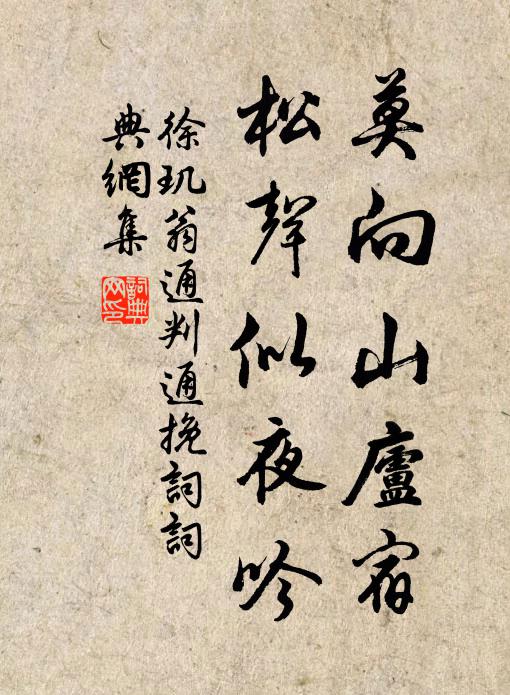 莫向山廬宿
松聲似夜吟
徐玑翁通判通挽詞詞
典網集
詞典
网印